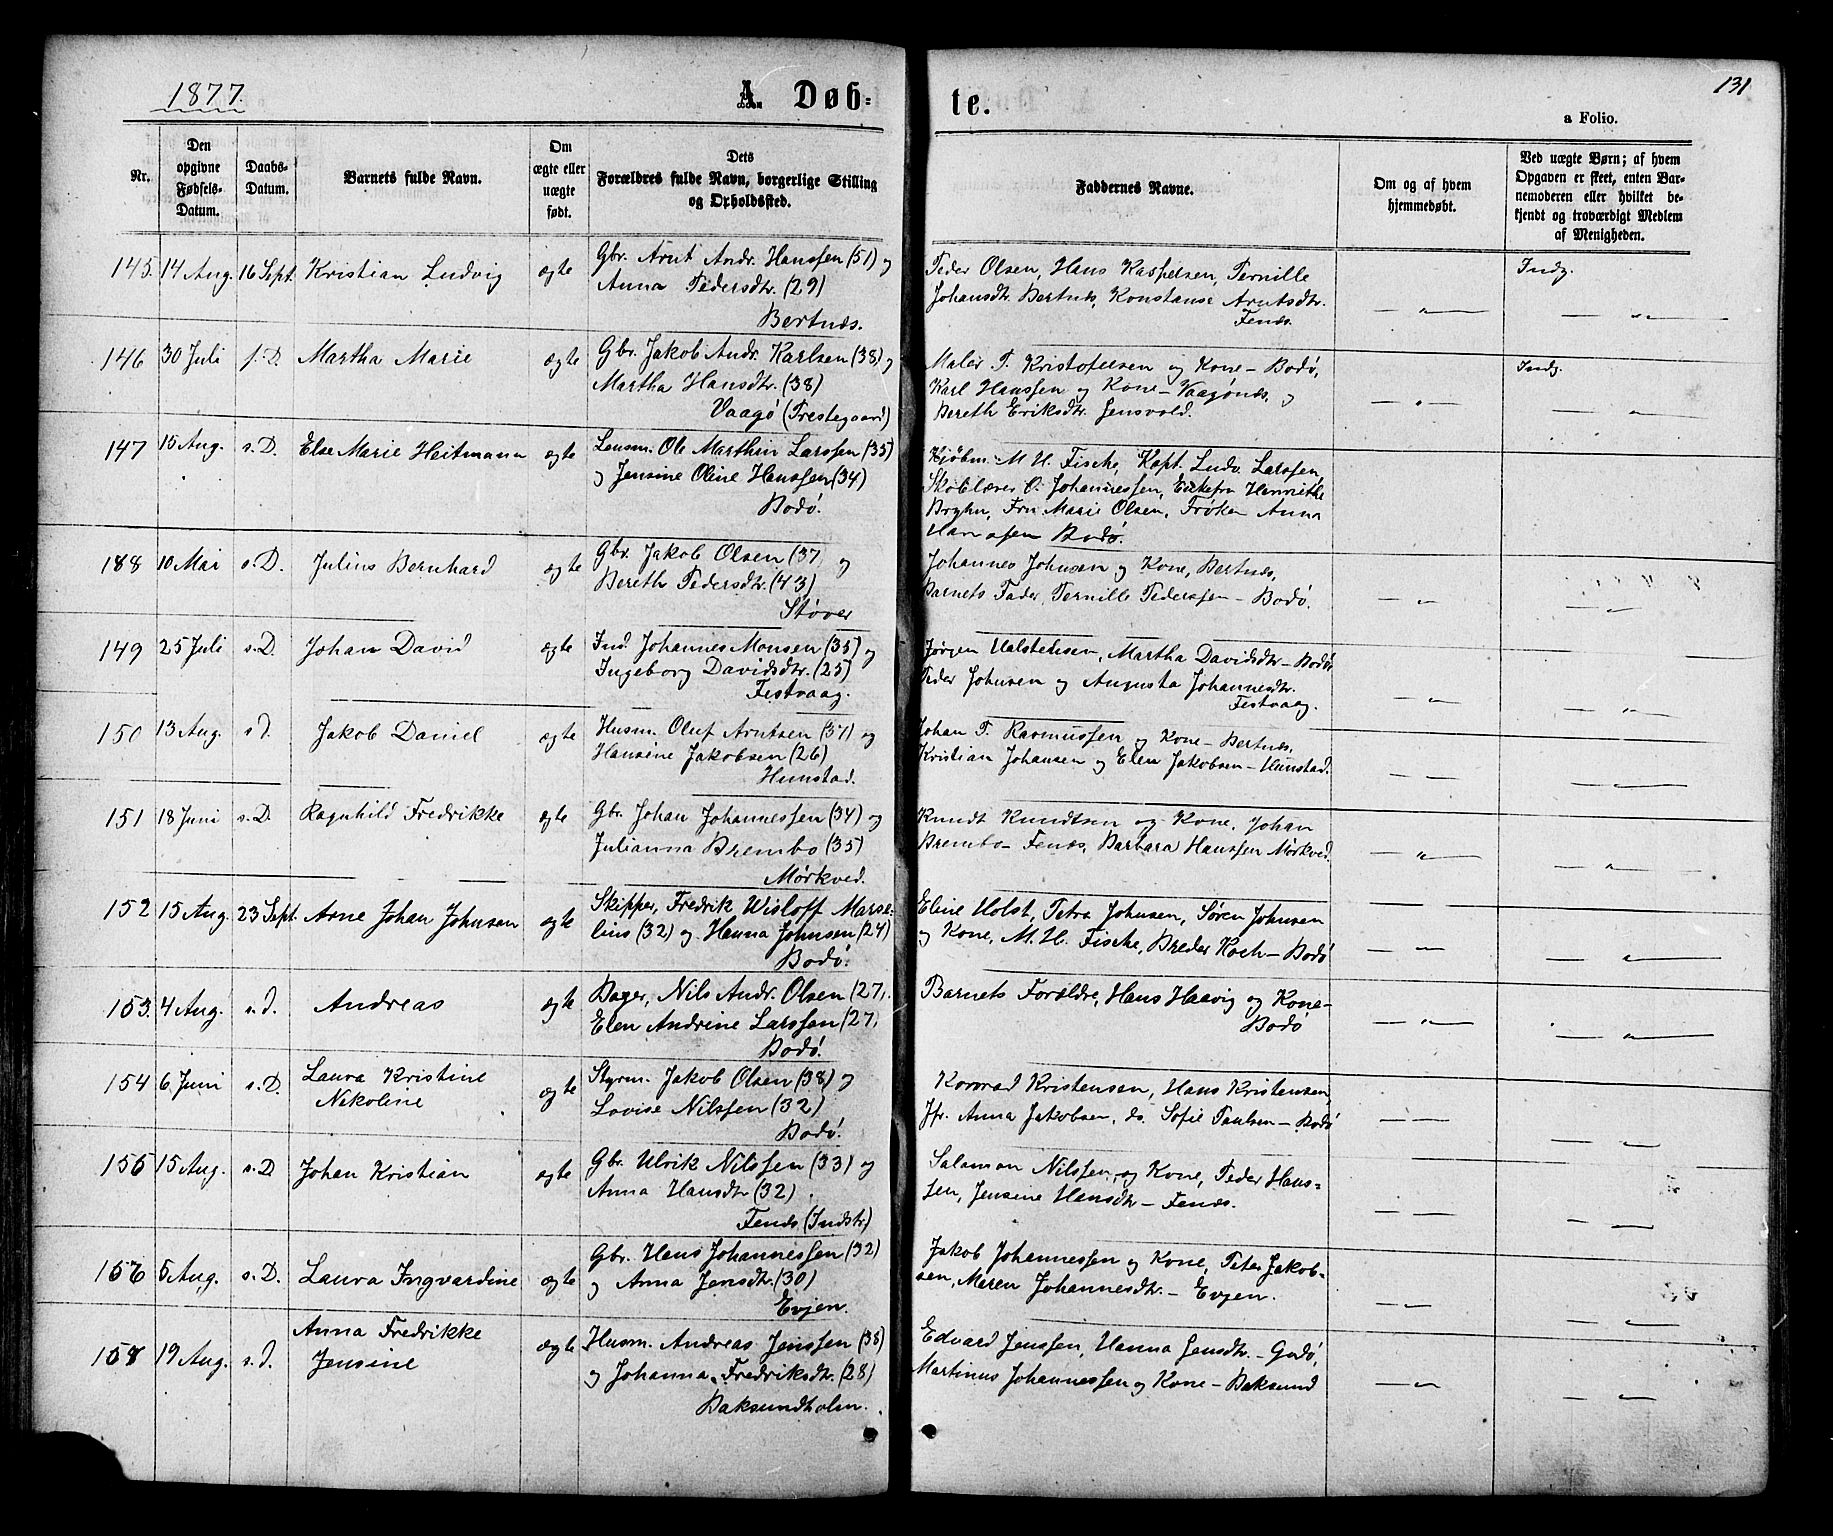 1877.
A. Døb-
te.
131
a Folio.
Nr.
Den opgivne Fødsels-Datum.
Daabs-Datum.
Barnets fulde Navn.
Om ægte eller uægte født.
Dets Forældres fulde Navn, borgerlige Stilling og Opholdssted.
Faddernes Navne.
Om og af hvem hjemmedøbt.
Ved uægte Børn; af hvem Opgaven er skeet, enten Barnemoderen eller hvilket bekjendt og troværdigt Medlem af Menigheden.
145. 14 Aug. 16 Sept. Kristian Ludvig ægte Gbr. Arnt Andr. Hanssen (51) og
Anna Pedersdtr. (29)
Bertnæs.
Peder Olsen, Hans Kaspersen, Pernille
Johansdtr. Bertnæs, Konstanse Arntsdtr.
Fenæs.
Indg.
146 30 Juli s. D. Martha Marie ægte Gbr. Jakob Andr. Karlsen (38) og
Martha Hansdtr. (38)
Vaagø (Prestegaard)
Maler P. Kristofersen og Kone - Bodø,
Karl Hanssen og Kone - Vaagønæs, og
Bereth Eriksdtr. Jensvold.
Indg.
147 15 Aug. s. D. Else Marie Heitmann ægte Lensm. Ole Marthin Larssen (35)
og Jensine Oline Hanssen (34)
Bodø.
Kjøbm. M. H. Fische, Kapt. Ludv. Larssen,
Skolelærer O. Johannessen, Enkefru Henriette
Bryhn, Fru Marie Olsen, Frøken Anna
Bodø.
188 10 Mai s. D. Julius Bernhard ægte Gbr. Jakob Olsen (37) og
Bereth Pedersdtr. (43)
Støver
Johannes Johnsen og Kone, Bertnæs,
Barnets Fader, Pernille Pederssen - Bodø.
149 25 Juli s. D. Johan David ægte Ind. Johannes Monsen (35) og
Ingeborg Davidsdtr. (25)
Festvaag.
Jørgen Halstensen, Martha Davidsdtr - Bodø,
Peder Johnsen og Augusta Johannesdtr.
Festvaag.
150 13 Aug. s d. Jakob Daniel ægte Husm. Oluf Arntsen (37) og
Hansine Jakobsen (26)
Hunstad.
Johan P. Rasmussen og Kone - Bertnæs,
Kristian Johansen og Elen Jakobsen - Hunstad.
151 18 Juni s. D. Ragnhild Fredrikke ægte Gbr. Johan Johannessen (34) og
Julianna Brembo (35)
Mørkved.
Knudt Knudtsen og Kone, Johan
Brembo - Fenæs, Barbara Hanssen Mørkved.
152 15 Aug. 23 Sept. Arne Johan Johnsen ægte Skipper, Fredrik Wisloff Marse-
lius (32) og Hanna Johnsen (24)
Bodø.
Eline Holst, Petra Johnsen, Søren Johnsen
og Kone, M. H. Fische, Breder Koch - Bodø
153. 4 Aug. s. d. Andreas ægte Bager, Nils Andr. Olsen (27,
Elen Andrine Larssen (27,
Bodø.
Barnets Forældre, Hans Haavig og Kone -
Bodø
154 6 Juni s. D. Laura Kristine
Nikoline ægte Styrm. Jakob Olsen (38) og
Lovise Nilssen (32)
Bodø.
Konrad Kristensen, Hans Kristensen,
Jfr. Anna Jakobsen, do. Sofie Paulsen - Bodø
155 15 Aug. s. D Johan Kristian ægte Gbr. Ulrik Nilssen (33) og
Anna Hansdtr (32)
Fenæs (Indstr.)
Salamon Nilssen, og Kone, Peder Hans-
sen, Jensine Hansdtr - Fenæs.
156 5 Aug. s. D. Laura Ingvardine ægte Gbr. Hans Johannessen (32)
og Anna Jensdtr. (30)
Evjen.
Jakob Johannessen og Kone, Peter Jakob-
sen, Maren Johannesdtr. - Evjen.
158 19 Aug. s. d. Anna Fredrikke
Jensine ægte Husm. Andreas Jenssen (38)
og Johanna Fredriksdtr. (28)
Baksundholm.
Edvard Jenssen, Hanna Jensdtr. - Godø,
Martinus Johannessen og Kone - Baksund